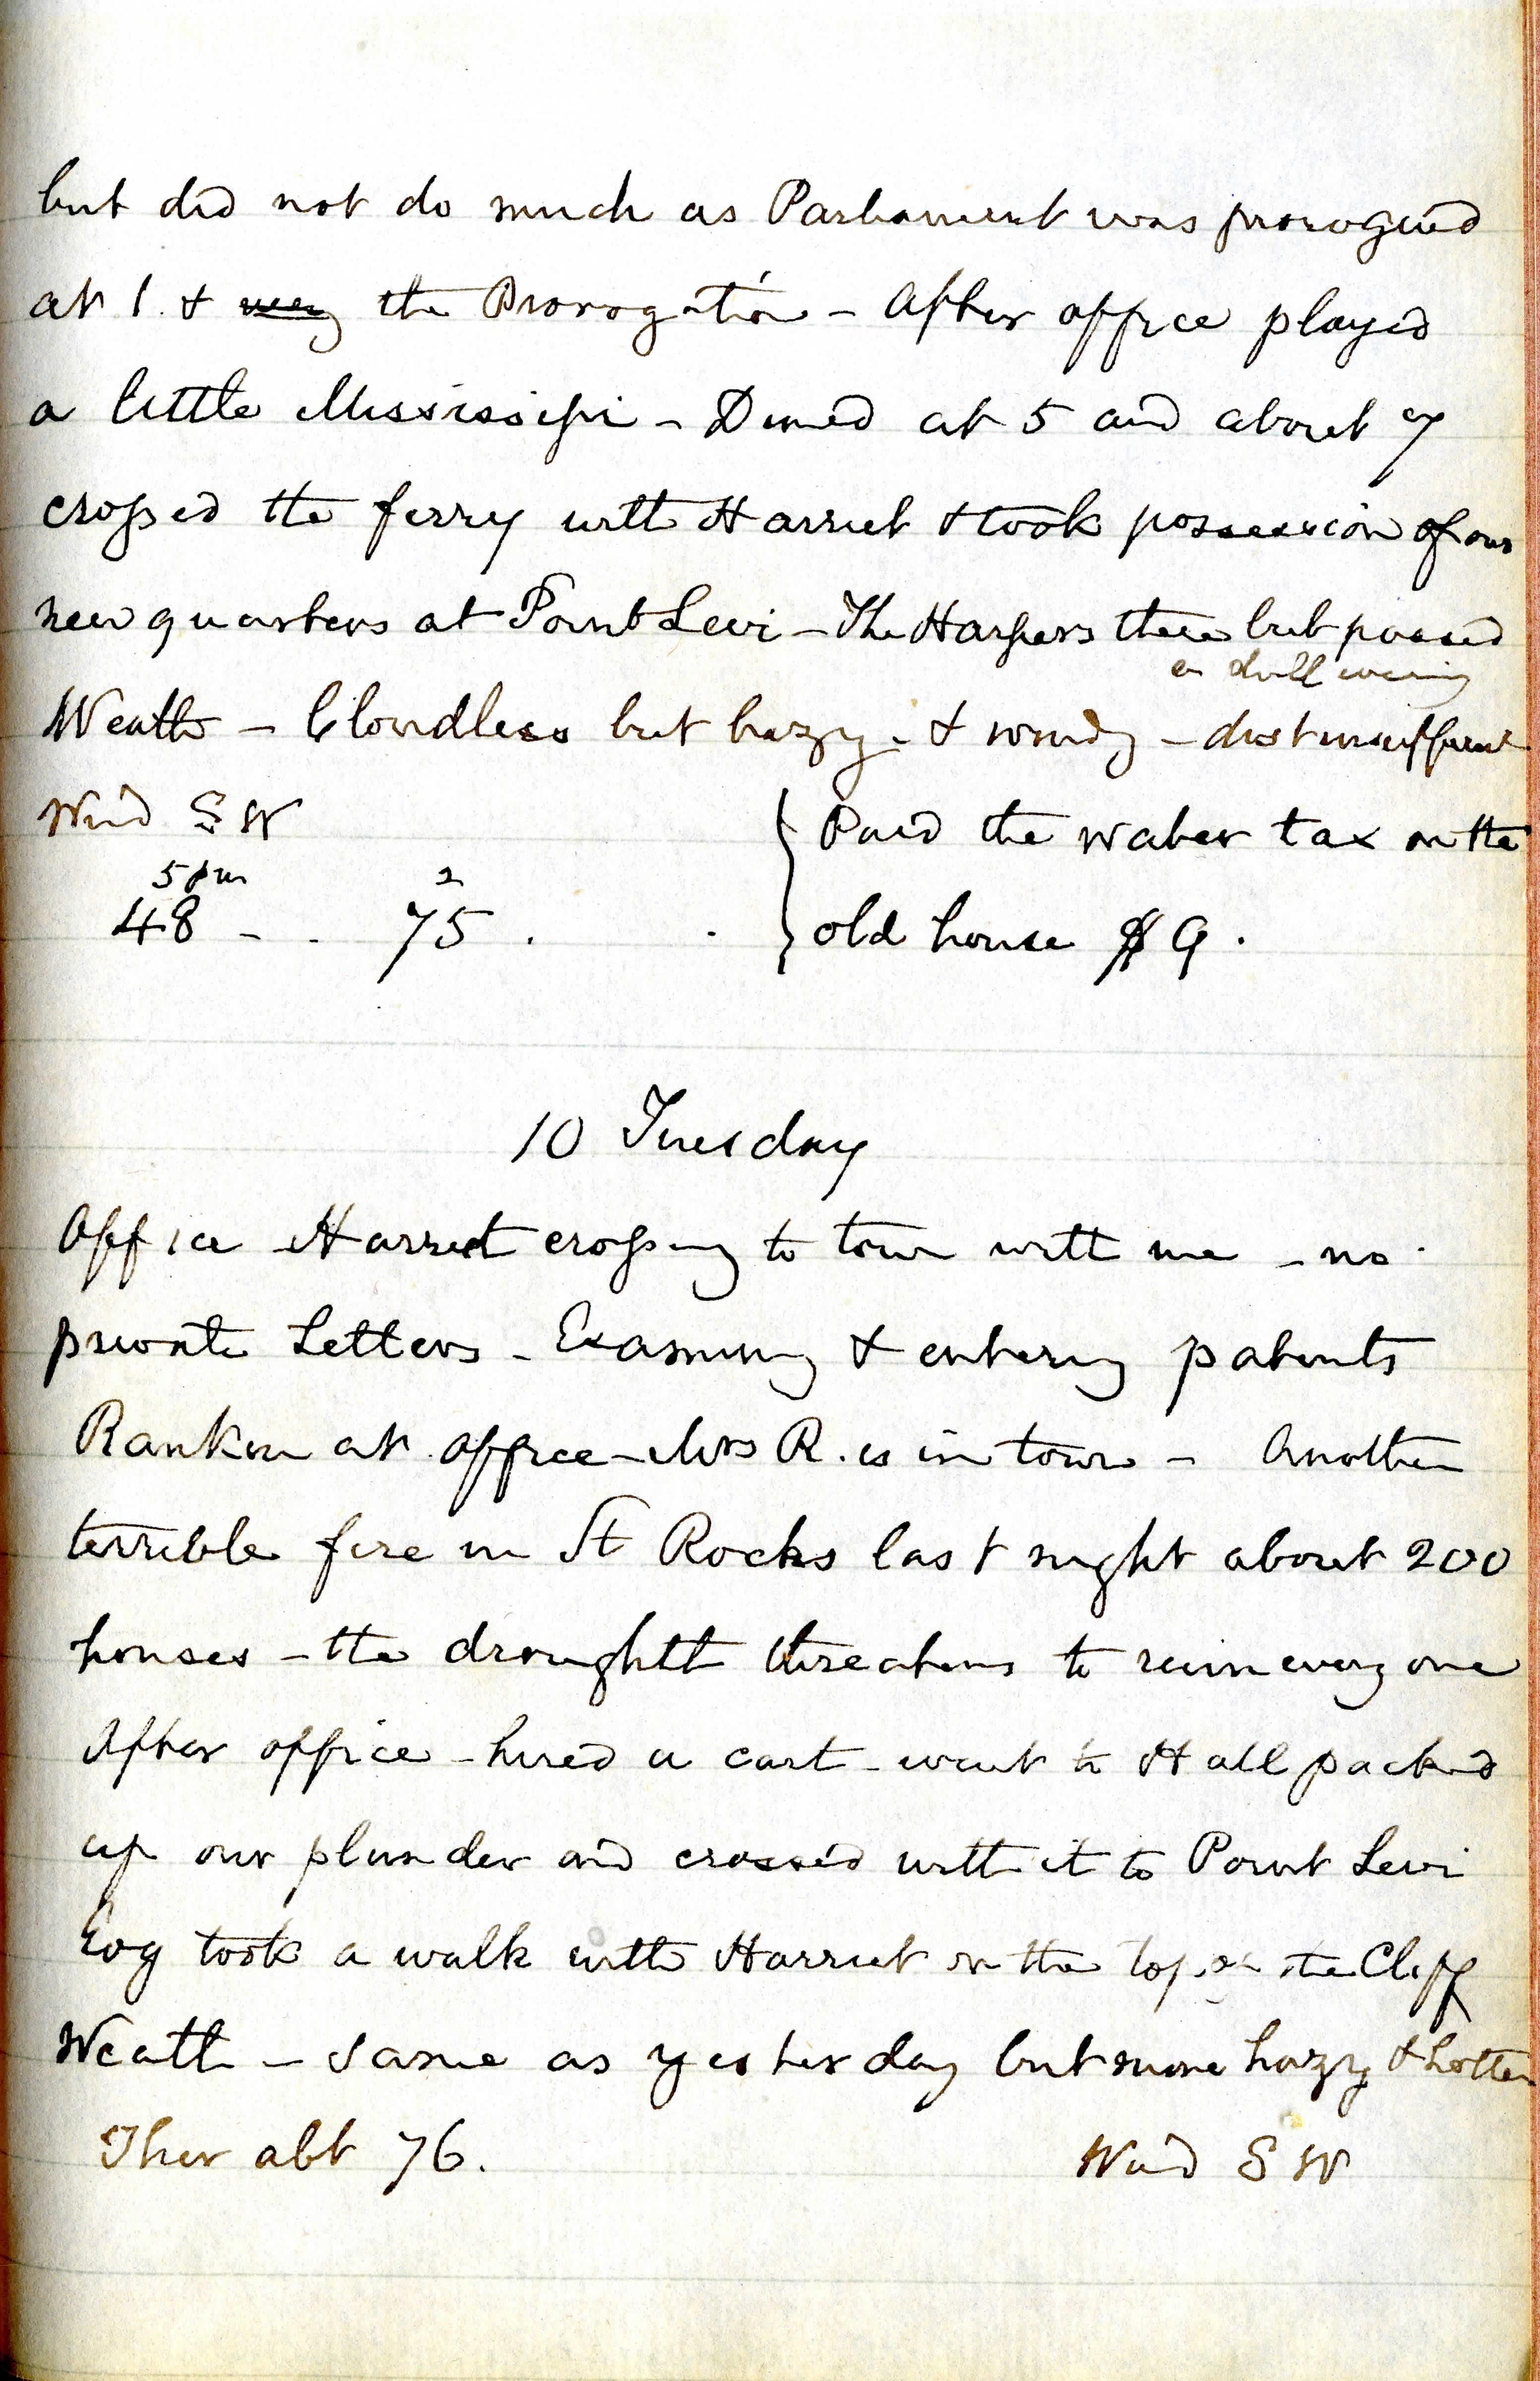 but did not do much as Parliament was prorogued
at 1. & very the Prorogation - After office played
a little Mississipi - Dined at 5 and about 7
crossed the ferry with Harriet & took possession of our
new quarters at Point Levi - The Harpers there but passed
a dull evening
Weath - Cloudless but hazy - & windy - dust insufferent
Wind SW
5 pm 2
48 - . 75 . .
Paid the water tax on the
old house $9.
10 Tuesday
Office Harriet crossing to town with me - no
private Letters - Examining & entering patents
Rankin at office - Mrs R. is in town - Another
terrible fire in St Rocks last night about 200
houses - the droughth threatens to ruin every one
After office - hired a cart - went to Hall packed
up our plunder and crossed with it to Point Levi
Evg took a walk with Harriet on the top on the Cliff
Weath - same as yesterday but more hazy & hotter
Ther abt 76. Wind SW